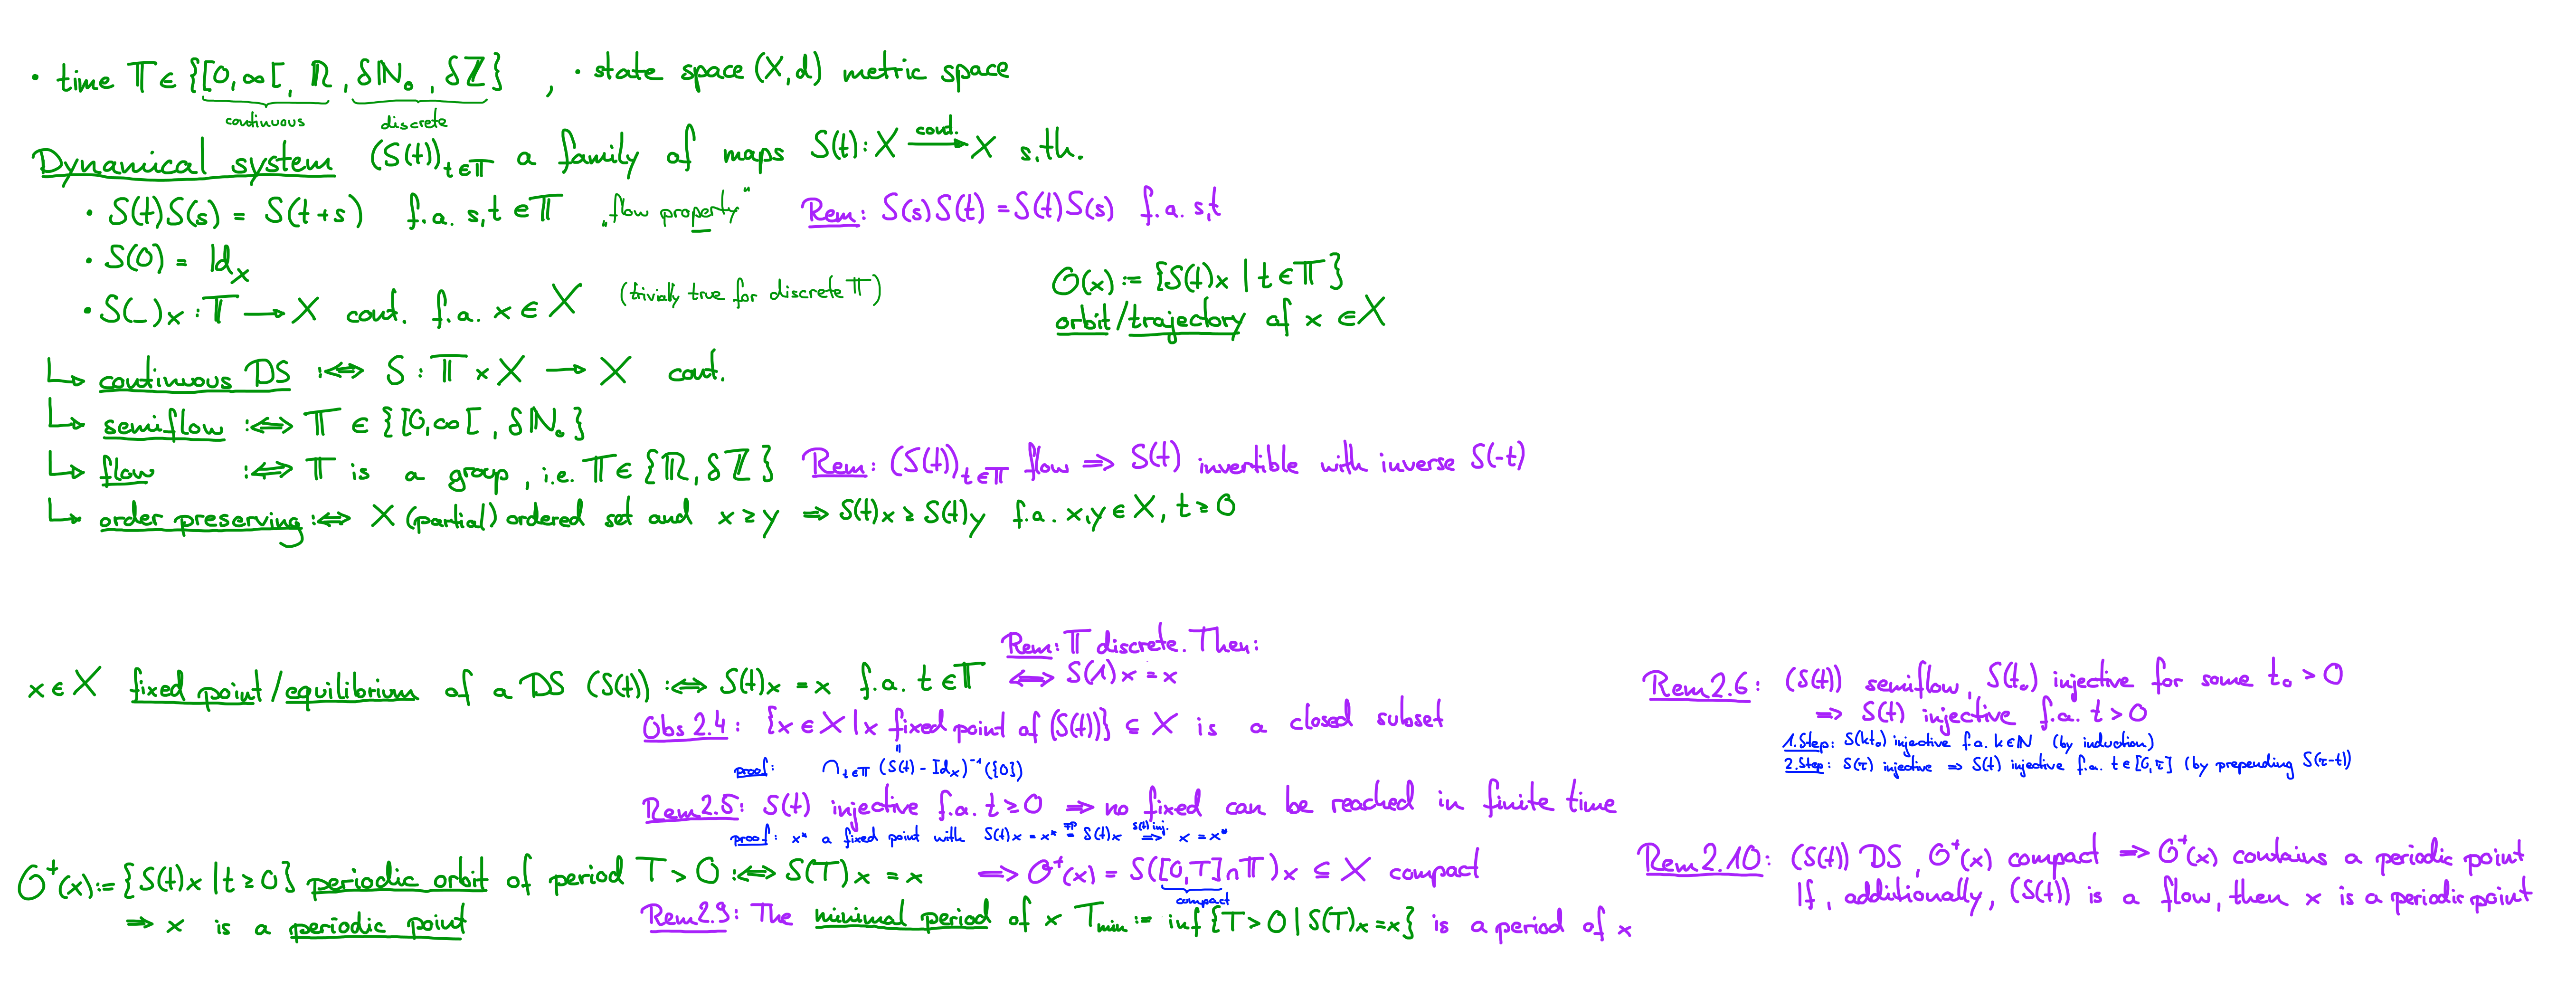 • time 𝕋 ∈ {[0,∞[, ℝ, δℕ₀, δℤ} , • state space (X,d) metric space
continuous discrete
Dynamical system (S(t))_{t∈𝕋} a family of maps S(t): X —cont.→ X s.th.
• S(t)S(s) = S(t+s) f.a. s,t ∈ 𝕋 „flow property" Rem: S(s)S(t) = S(t)S(s) f.a. s,t
• S(0) = Id_X
• S(_)x : 𝕋 → X cont. f.a. x ∈ X (trivially true for discrete 𝕋)
O(x) := {S(t)x | t ∈ 𝕋}
orbit/trajectory of x ∈ X
↳ continuous DS :⇔ S : 𝕋 × X → X cont.
↳ semiflow :⇔ 𝕋 ∈ {[0,∞[, δℕ₀}
↳ flow :⇔ 𝕋 is a group, i.e. 𝕋 ∈ {ℝ, δℤ} Rem: (S(t))_{t∈𝕋} flow ⇒ S(t) invertible with inverse S(-t)
↳ order preserving :⇔ X (partial) ordered set and x ≥ y ⇒ S(t)x ≥ S(t)y f.a. x,y ∈ X, t ≥ 0
Rem: 𝕋 discrete. Then:
x ∈ X fixed point/equilibrium of a DS (S(t)) :⇔ S(t)x = x f.a. t ∈ 𝕋 ⇔ S(1)x = x
Obs 2.4: {x ∈ X | x fixed point of (S(t))} ⊆ X is a closed subset
"
proof: ∩_{t∈𝕋} (S(t) - Id_X)⁻¹({0})
Rem 2.5: S(t) injective f.a. t ≥ 0 ⇒ no fixed can be reached in finite time
proof: x* a fixed point with S(t)x = x* =^{FP} S(t)x ⇒^{S(t) inj.} x = x*
Rem 2.6: (S(t)) semiflow, S(t₀) injective for some t₀ > 0
⇒ S(t) injective f.a. t > 0
1.Step: S(kt₀) injective f.a. k∈ℕ (by induction)
2.Step: S(τ) injective ⇒ S(t) injective f.a. t ∈ [0,τ] (by prepending S(τ-t))
O⁺(x) := {S(t)x | t ≥ 0} periodic orbit of period T > 0 :⇔ S(T)x = x ⇒ O⁺(x) = S([0,T]∩𝕋)x ⊆ X compact
compact
⇒ x is a periodic point
Rem 2.9: The minimal period of x T_min := inf{T > 0 | S(T)x = x} is a period of x
Rem 2.10: (S(t)) DS, O⁺(x) compact ⇒ O⁺(x) contains a periodic point
If, additionally, (S(t)) is a flow, then x is a periodic point